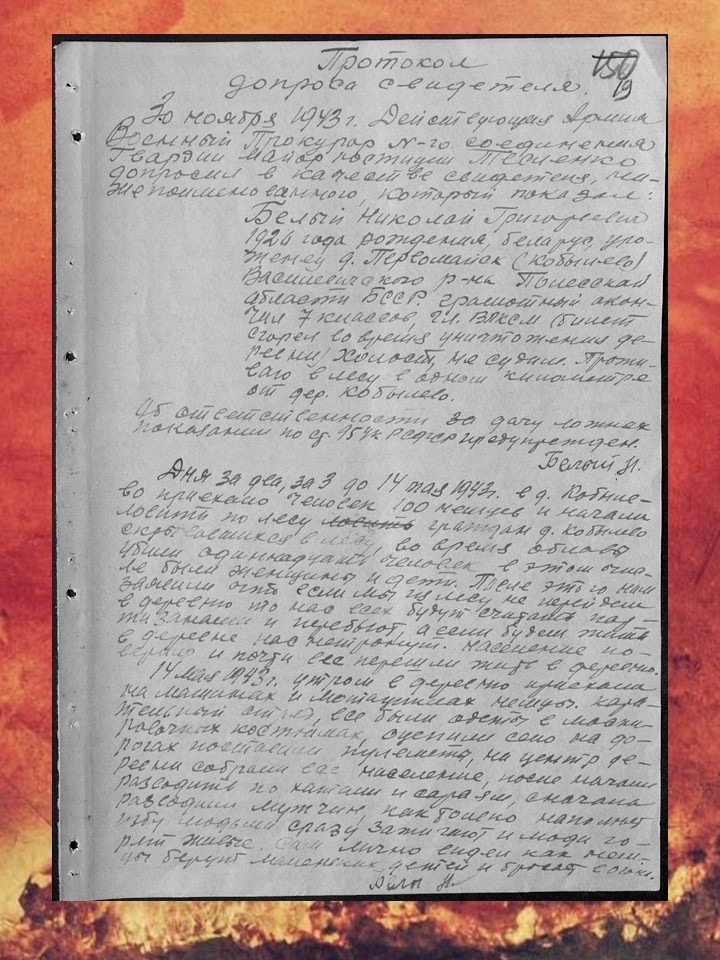 150
19
Протокол
допроса свидетеля.
30 ноября 1943 г. Действующая Армия
Военный Прокурор N-го соединения
Гвардии майор юстиции
допросил в качестве свидетеля, ни-
жепоименованного, который показал:
Белый Николай Григорьевич
1926 года рождения, беларус, уро-
женец д. Первомайск (Кобылево)
Василевичского р-на Полесской
области БССР, грамотный окон-
чил 7 классов, чл. ВЛКСМ (билет
сгорел во время уничтожения де-
ревни) холост, не судим. Прожи-
ваю в лесу в одном километре
от дер. Кобылево.
Об ответственности за дачу ложных
показаний по ст. 95 УК РСФСР предупрежден.
Белый Н.
Дня за два, за 3 до 14 мая 1943 г. в д. Кобыле-
во приехало человек 100 немцев и начали
ловить по лесу ловить граждан д. Кобылево
скрывавшихся в лесу, во время облавы
убили одиннадцать человек в этом чис-
ле были женщины и дети. После этого нам
заявили что если мы из лесу не перейдем
в деревню то нас всех будут считать пар-
тизанами и перебьют, а если будем жить
в деревне нас не тронут. Население по-
верило и почти все перешли жить в деревню.
14 мая 1943 г. утром в деревню приехали
на машинах и мотоциклах немцы. кара-
тельный отряд, все были одеты в маски-
ровочных костюмах, оцепили село на до-
рогах поставили пулеметы, на центр де-
ревни собрали все население, после начали
разводить по хатам и сараям, сначала
разводили мужчин, как только наполнят
избу людьми сразу зажигают и люди го-
рят живые. Сам лично видел как нем-
цы берут маленьких детей и бросают в огонь.
Белы Н.